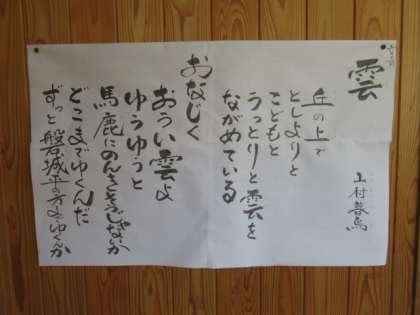 雲
山村暮鳥
丘の上で
としよりと
こどもと
うっとりと雲を
ながめている
おなじく
おうい雲よ
ゆうゆうと
馬鹿にのんきそうじゃないか
どこまでゆくんだ
ずっと磐城平の方までゆくんか